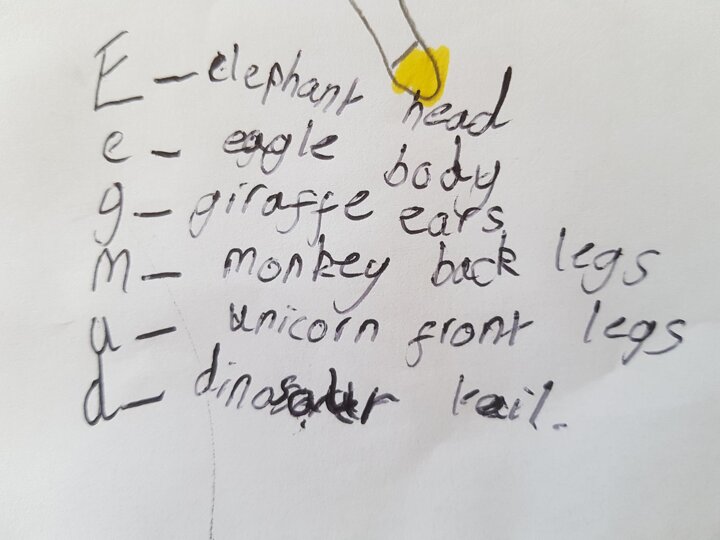 E - elephant head
e - eagle body
g - giraffe ears
M - monkey back legs
u - unicorn front legs
d - dinosaur tail.